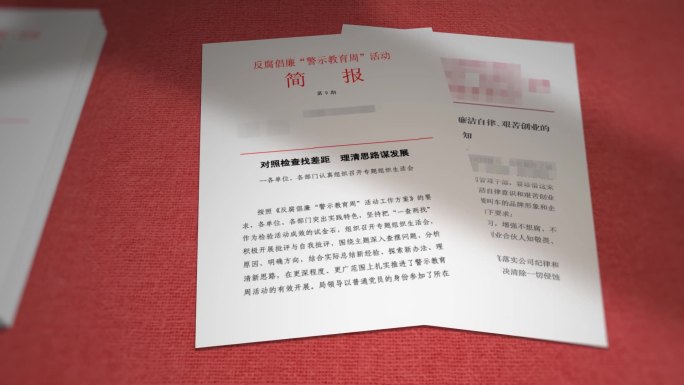 反腐倡廉“警示教育周”活动
简 报
第9期
对照检查找差距 理清思路谋发展
—各单位、各部门认真组织召开专题组织生活会
按照《反腐倡廉“警示教育周”活动工作方案》的要
求，各单位、各部门突出实践特色，坚持把“一查两找”
作为检验活动成效的试金石，组织召开专题组织生活会，
积极开展批评与自我批评，围绕主题深入查摆问题、分析
原因、明确方向，结合实际总结新经验、探索新办法、理
清新思路，在更深程度、更广范围上扎实推进了警示教育
周活动的有效开展。局领导以普通党员的身份参加了所在
廉洁自律、艰苦创业的
知
洁自律意识和艰苦创业
叫车的品牌形象和企
下要求：
习，增强不想腐、不
业合伙人知敬畏、
落实公司纪律和
决清除一切侵蚀